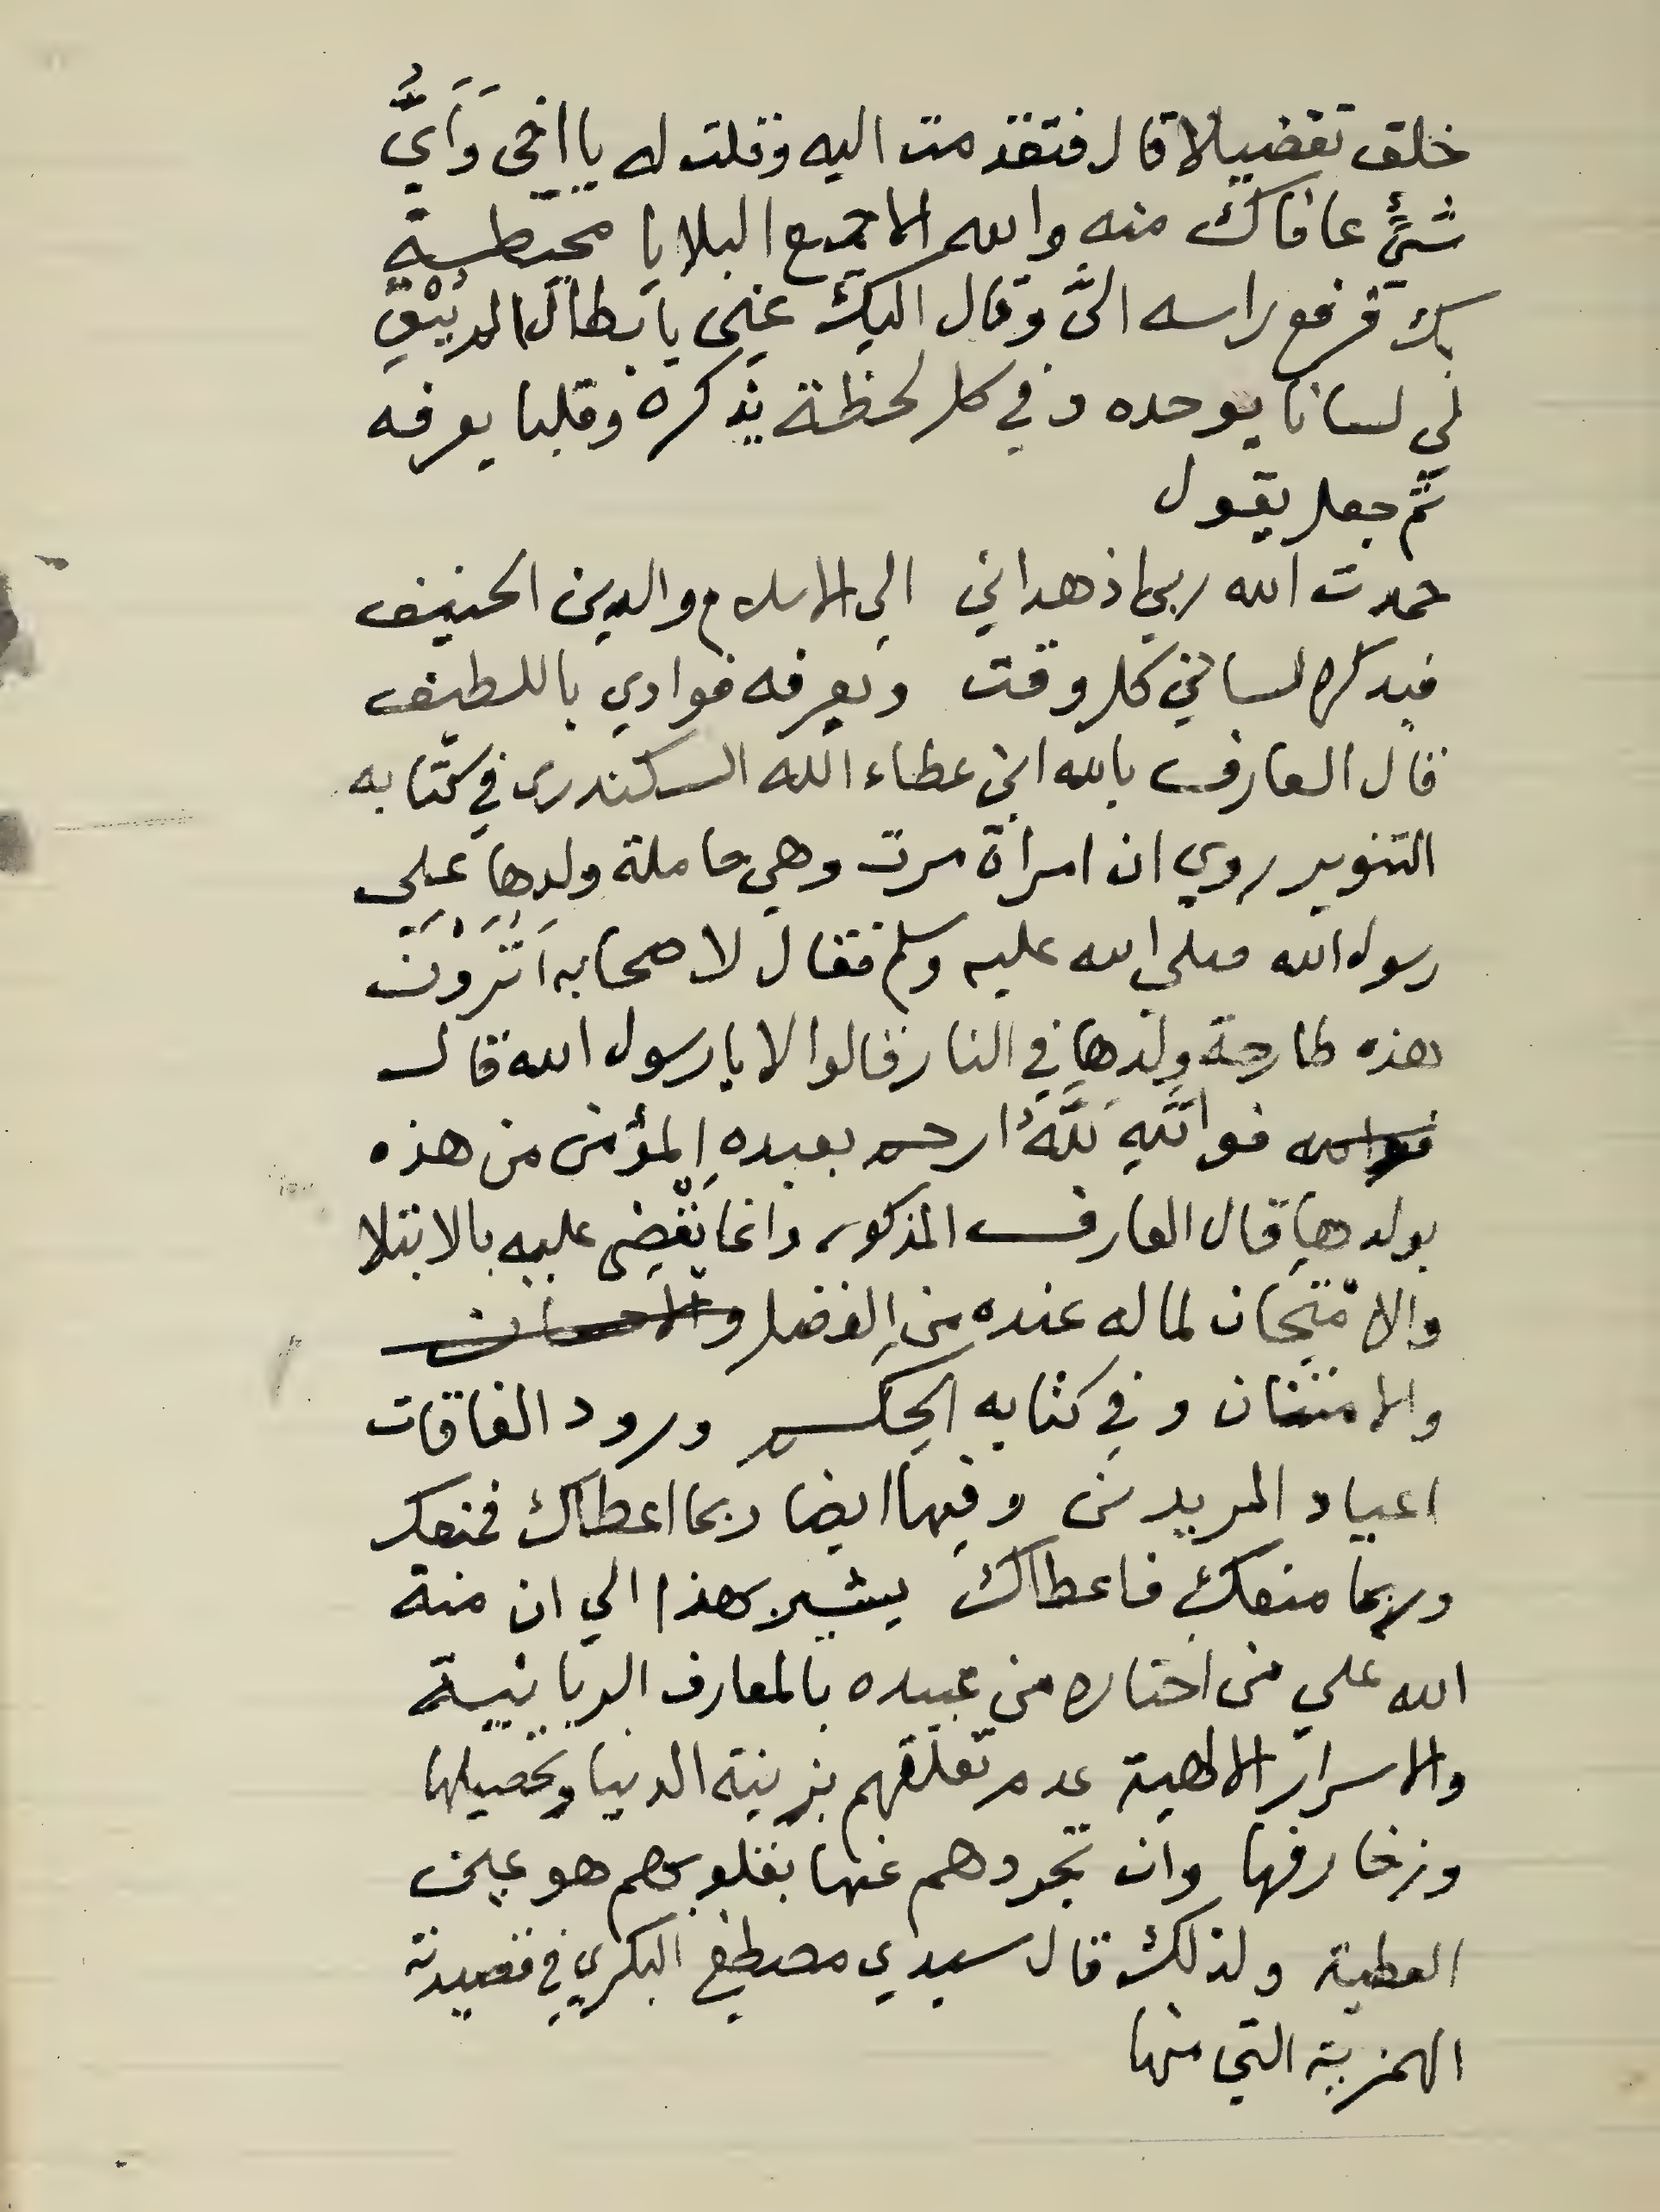 خلق تفضيلا قال فتقدمت اليه وقلت له يا اخى وَاَيُّ
شئٍ عافاك منه والله الا جميع البلايا محتطية
بك فرفع راسه الىَّ وقال اليك عنى يا بطال الم يُبْقِ
لي لسانا يوحده وفي كل لحظة يذكره وقلبا يعرفه
ثم جعل يقول
حمدت الله ربي اذ هداني الى الاسلام والدين الحنيف
فيذكره لساني كل وقت ويعرفه فوادي باللطيف
قال العارف بالله ابن عطاء الله السكندرى في كتابه
التنوير روي ان امراة مرت وهي حاملة ولدها علي
رسول الله صلى الله عليه وسلم فقال لاصحابه اَتَرَوْنَ
هذه طارحة ولدها في النار فقالوا لا يا رسول الله قال
فوالله فواللَّهِ لَلَّهُ ارحم بعبده المؤمن من هذه
بولدها قال العارف المذكور وانما يَقْضِى عليه بالابتلا
والامتحان لما له عنده من الفضل والاحسان
والامتنان وفي كتابه الحكم ورود الفاقات
اعياد المريدين وفيها ايضا ربما اعطاك فمنعك
وربما منعك فاعطاك يشير بهذا الي ان منة
الله علي من اختاره من عبيده بالمعارف الربانية
والاسرار الالهية عدم تعلقهم بزينة الدنيا وتحصيلها
وزخارفها وان تجردهم عنها بقلوبهم هو عين
العطية ولذلك قال سيدي مصطفي البكري في قصيدته
الهمزية التي منها